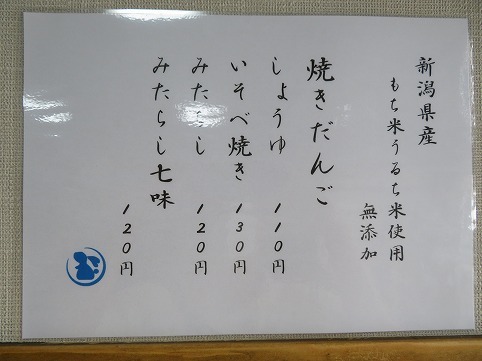 新潟県産
もち米うるち米使用
無添加
焼きだんご
しょうゆ 110円
いそべ焼き 130円
みたらし 120円
みたらし七味 120円